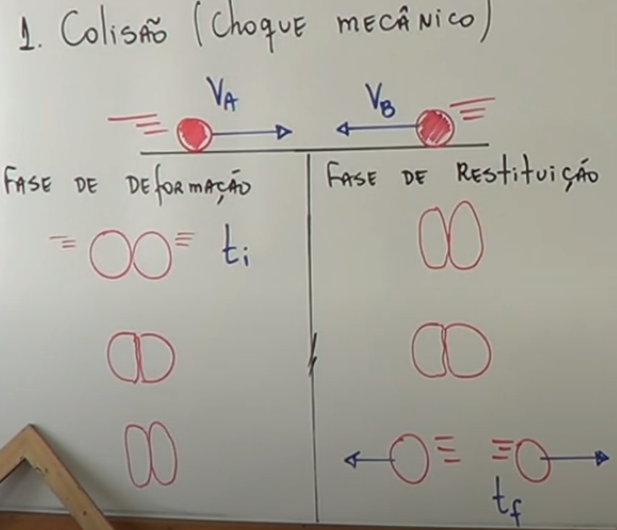 1. Colisão (Choque mecânico)
VA
VB
Fase de Deformação
Fase de Restituição
ti
tf